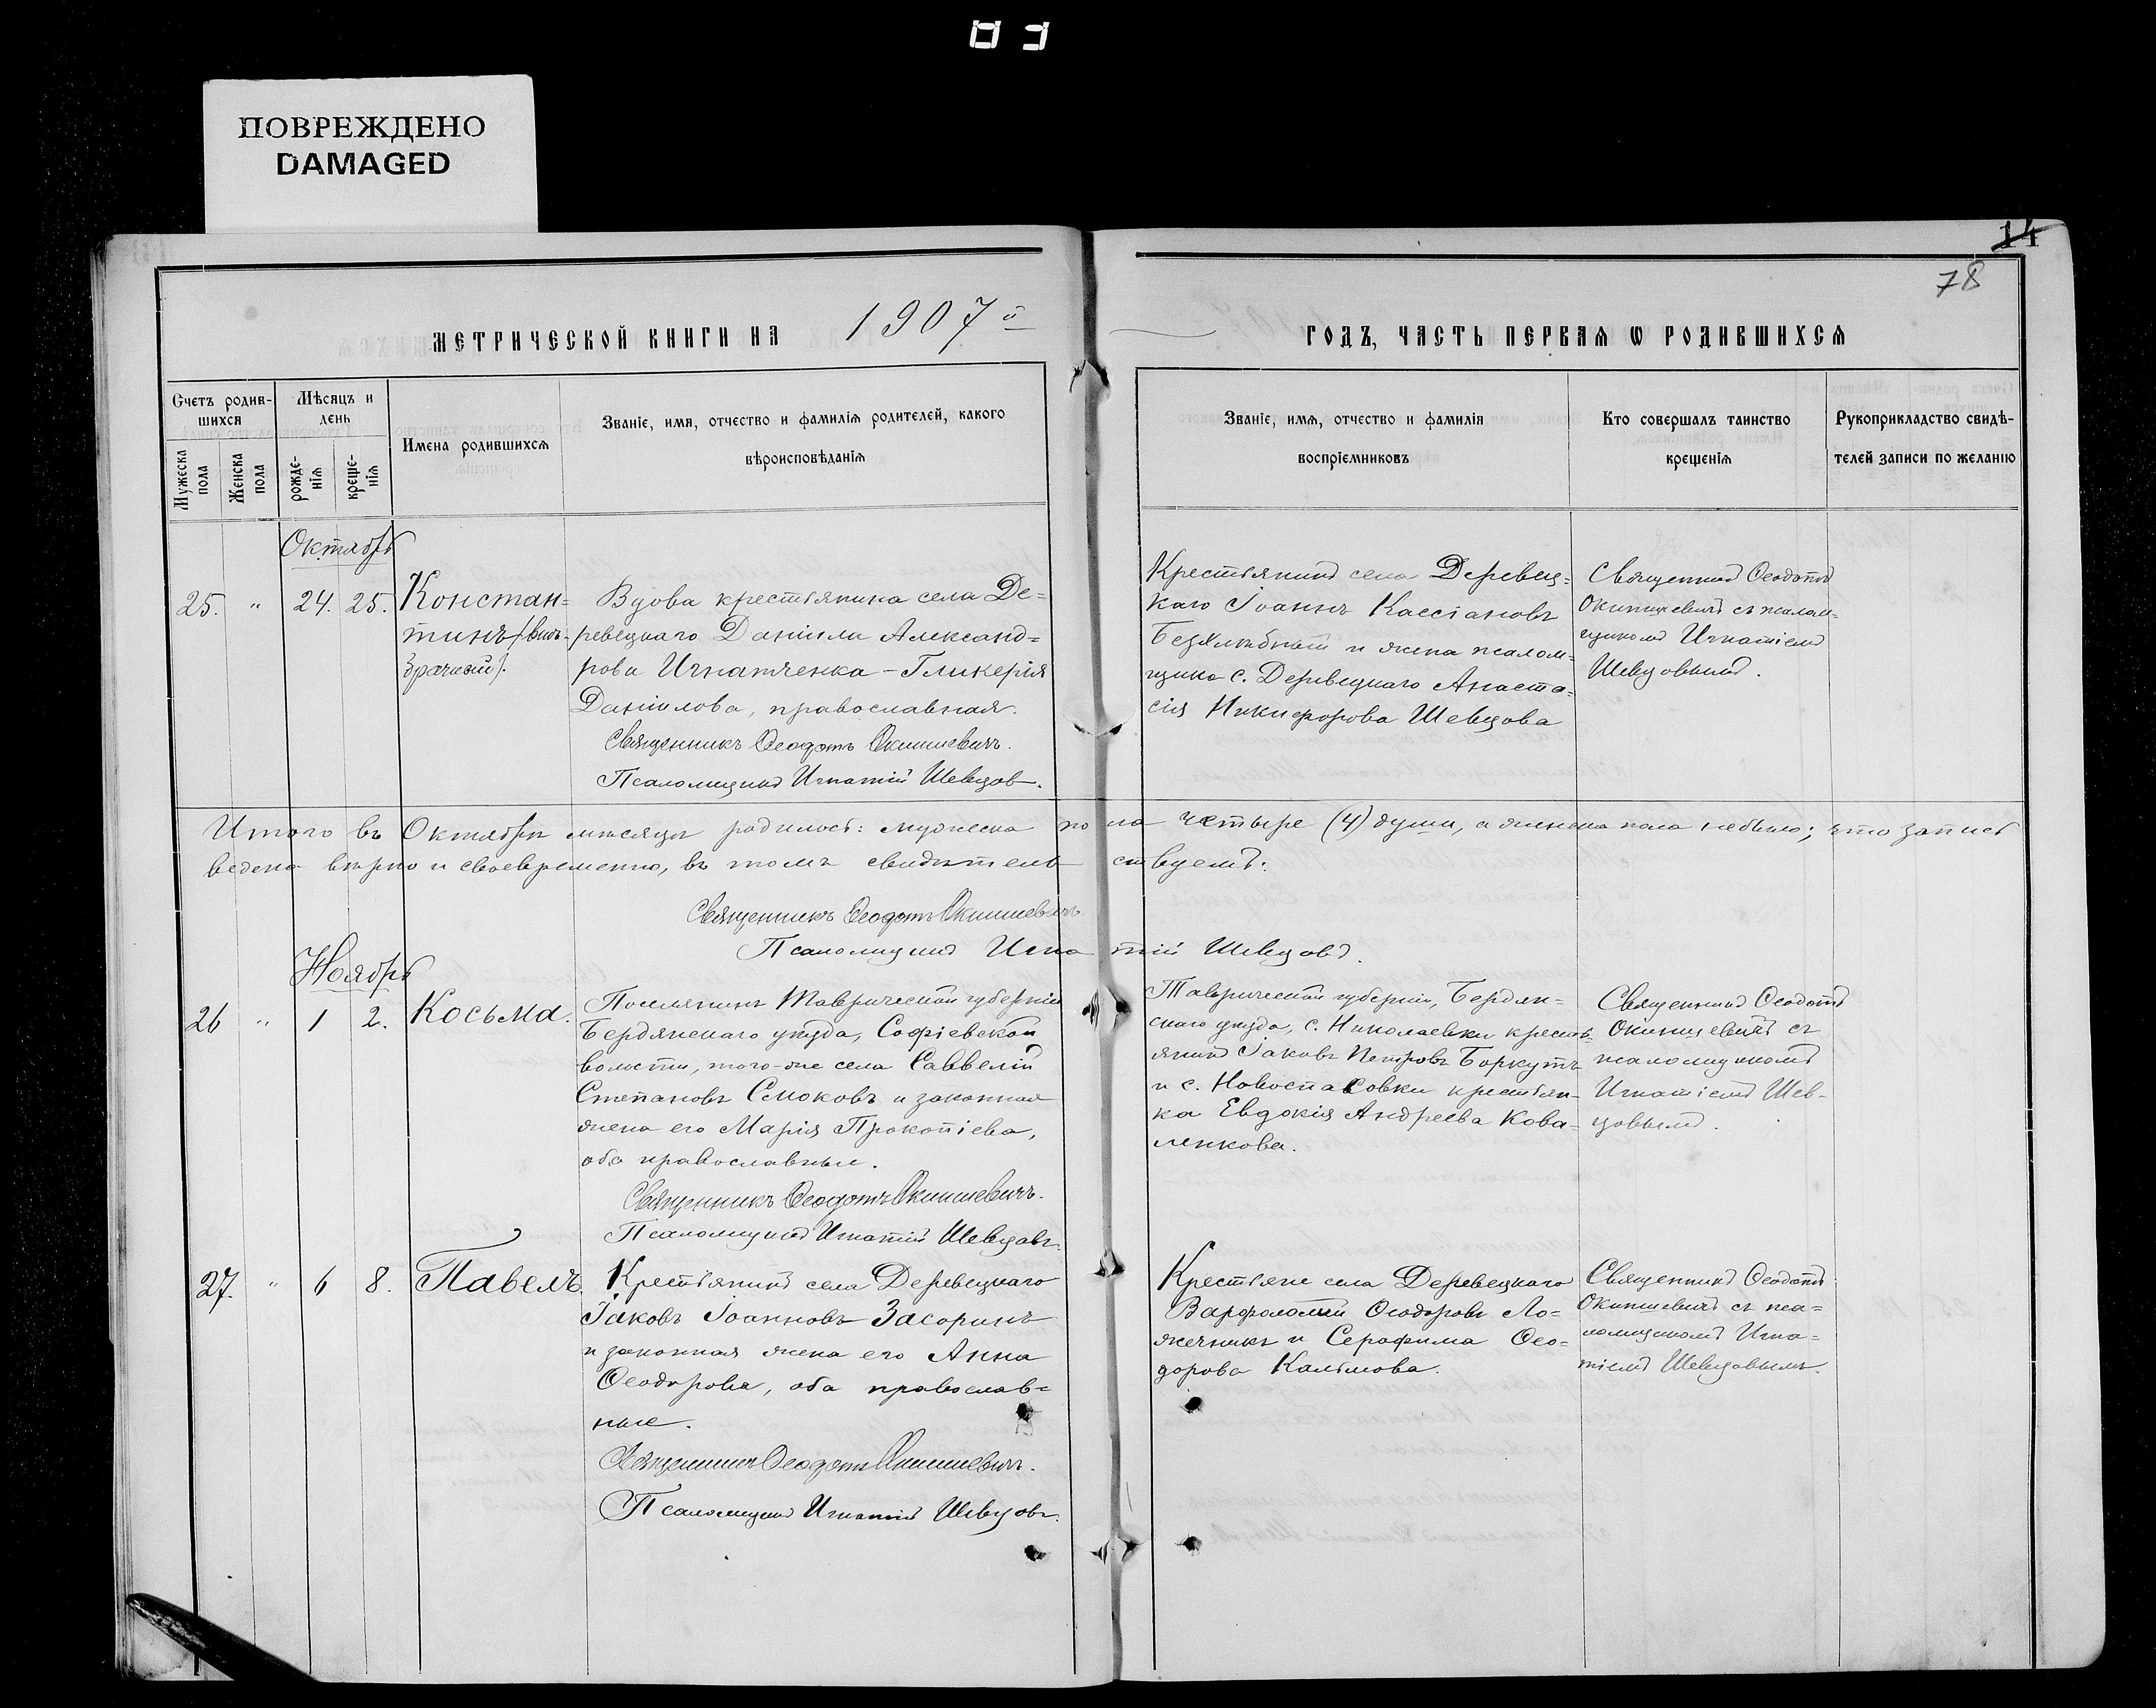 ПОВРЕЖДЕНО
DAMAGED
14
78
МЕТРИЧЕСКОЙ КНИГИ НА 1907й
ГОДЪ, ЧАСТЬ ПЕРВАЯ Ѡ РОДИВШИХСЯ
Счетъ родив-
шихся
Мужеска
пола
Женска
пола
Мѣсяцъ и
день
рожде-
нія
креще-
нія
Имена родившихся
Званіе, имя, отчество и фамилія родителей, какого
вѣроисповѣданія
Званіе, имя, отчество и фамилія
воспріемниковъ
Кто совершалъ таинство
крещенія
Рукоприкладство свидѣ-
телей записи по желанію
Октябрь
25. " 24. 25.
Констан=
тинъ (внѣ-
брачный).
Вдова крестьянина села Де=
ревецкаго Даніила Александ=
рова Игнатченка - Гликерія
Даніилова, православная.
Священникъ Ѳеодотъ Окишевичъ.
Псаломщикъ Игнатій Шевцовъ.
Крестьянинъ села Деревец=
каго Іоаннъ Кассіановъ
и жена псалом=
щика с. Деревецкаго Анаста=
сія Никифорова Шевцова
Священникъ Ѳеодотъ
Окишевичъ съ псалом=
щикомъ Игнатіемъ
Шевцовымъ.
Итого въ Октябрѣ мѣсяцѣ родилось: мужеска пола четыре (4) души, а женска пола небыло; что запись
ведена вѣрно и своевременно, въ томъ свидѣтельствуемъ:
Священникъ Ѳеодотъ Окишевичъ
Псаломщикъ Игнатій Шевцовъ.
Ноябрь
26 " 1 2.
Косьма.
Поселянинъ Таврической губерніи
Бердянскаго уѣзда, Софіевской
волости, того-же села Саввелій
Степановъ Смоковъ и законная
жена его Марія Прокопіева,
оба православные.
Священникъ Ѳеодотъ Окишевичъ.
Псаломщикъ Игнатій Шевцовъ.
Таврической губерніи, Бердян=
скаго уѣзда, с. Николаевки крестья-
янинъ Іаковъ Петровъ Боркутъ
и с. Новоспасовки крестьян-
ка Евдокія Андреева Кова=
ленкова.
Священникъ Ѳеодотъ
Окишевичъ съ
псаломщикомъ
Игнатіемъ Шев-
цовымъ.
27. " 6 8.
Павелъ.
Крестьянинъ села Деревецкаго
Іаковъ Іоанновъ Засоринъ
и законная жена его Анна
Ѳеодорова, оба православ=
ные.
Священникъ Ѳеодотъ Окишевичъ.
Псаломщикъ Игнатій Шевцовъ.
Крестьяне села Деревецкаго
Варфоломей Ѳеодоровъ Ло=
жечникъ и Серафима Ѳео=
дорова Калымова.
Священникъ Ѳеодотъ
Окишевичъ съ пса=
ломщикомъ Игна=
тіемъ Шевцовымъ.